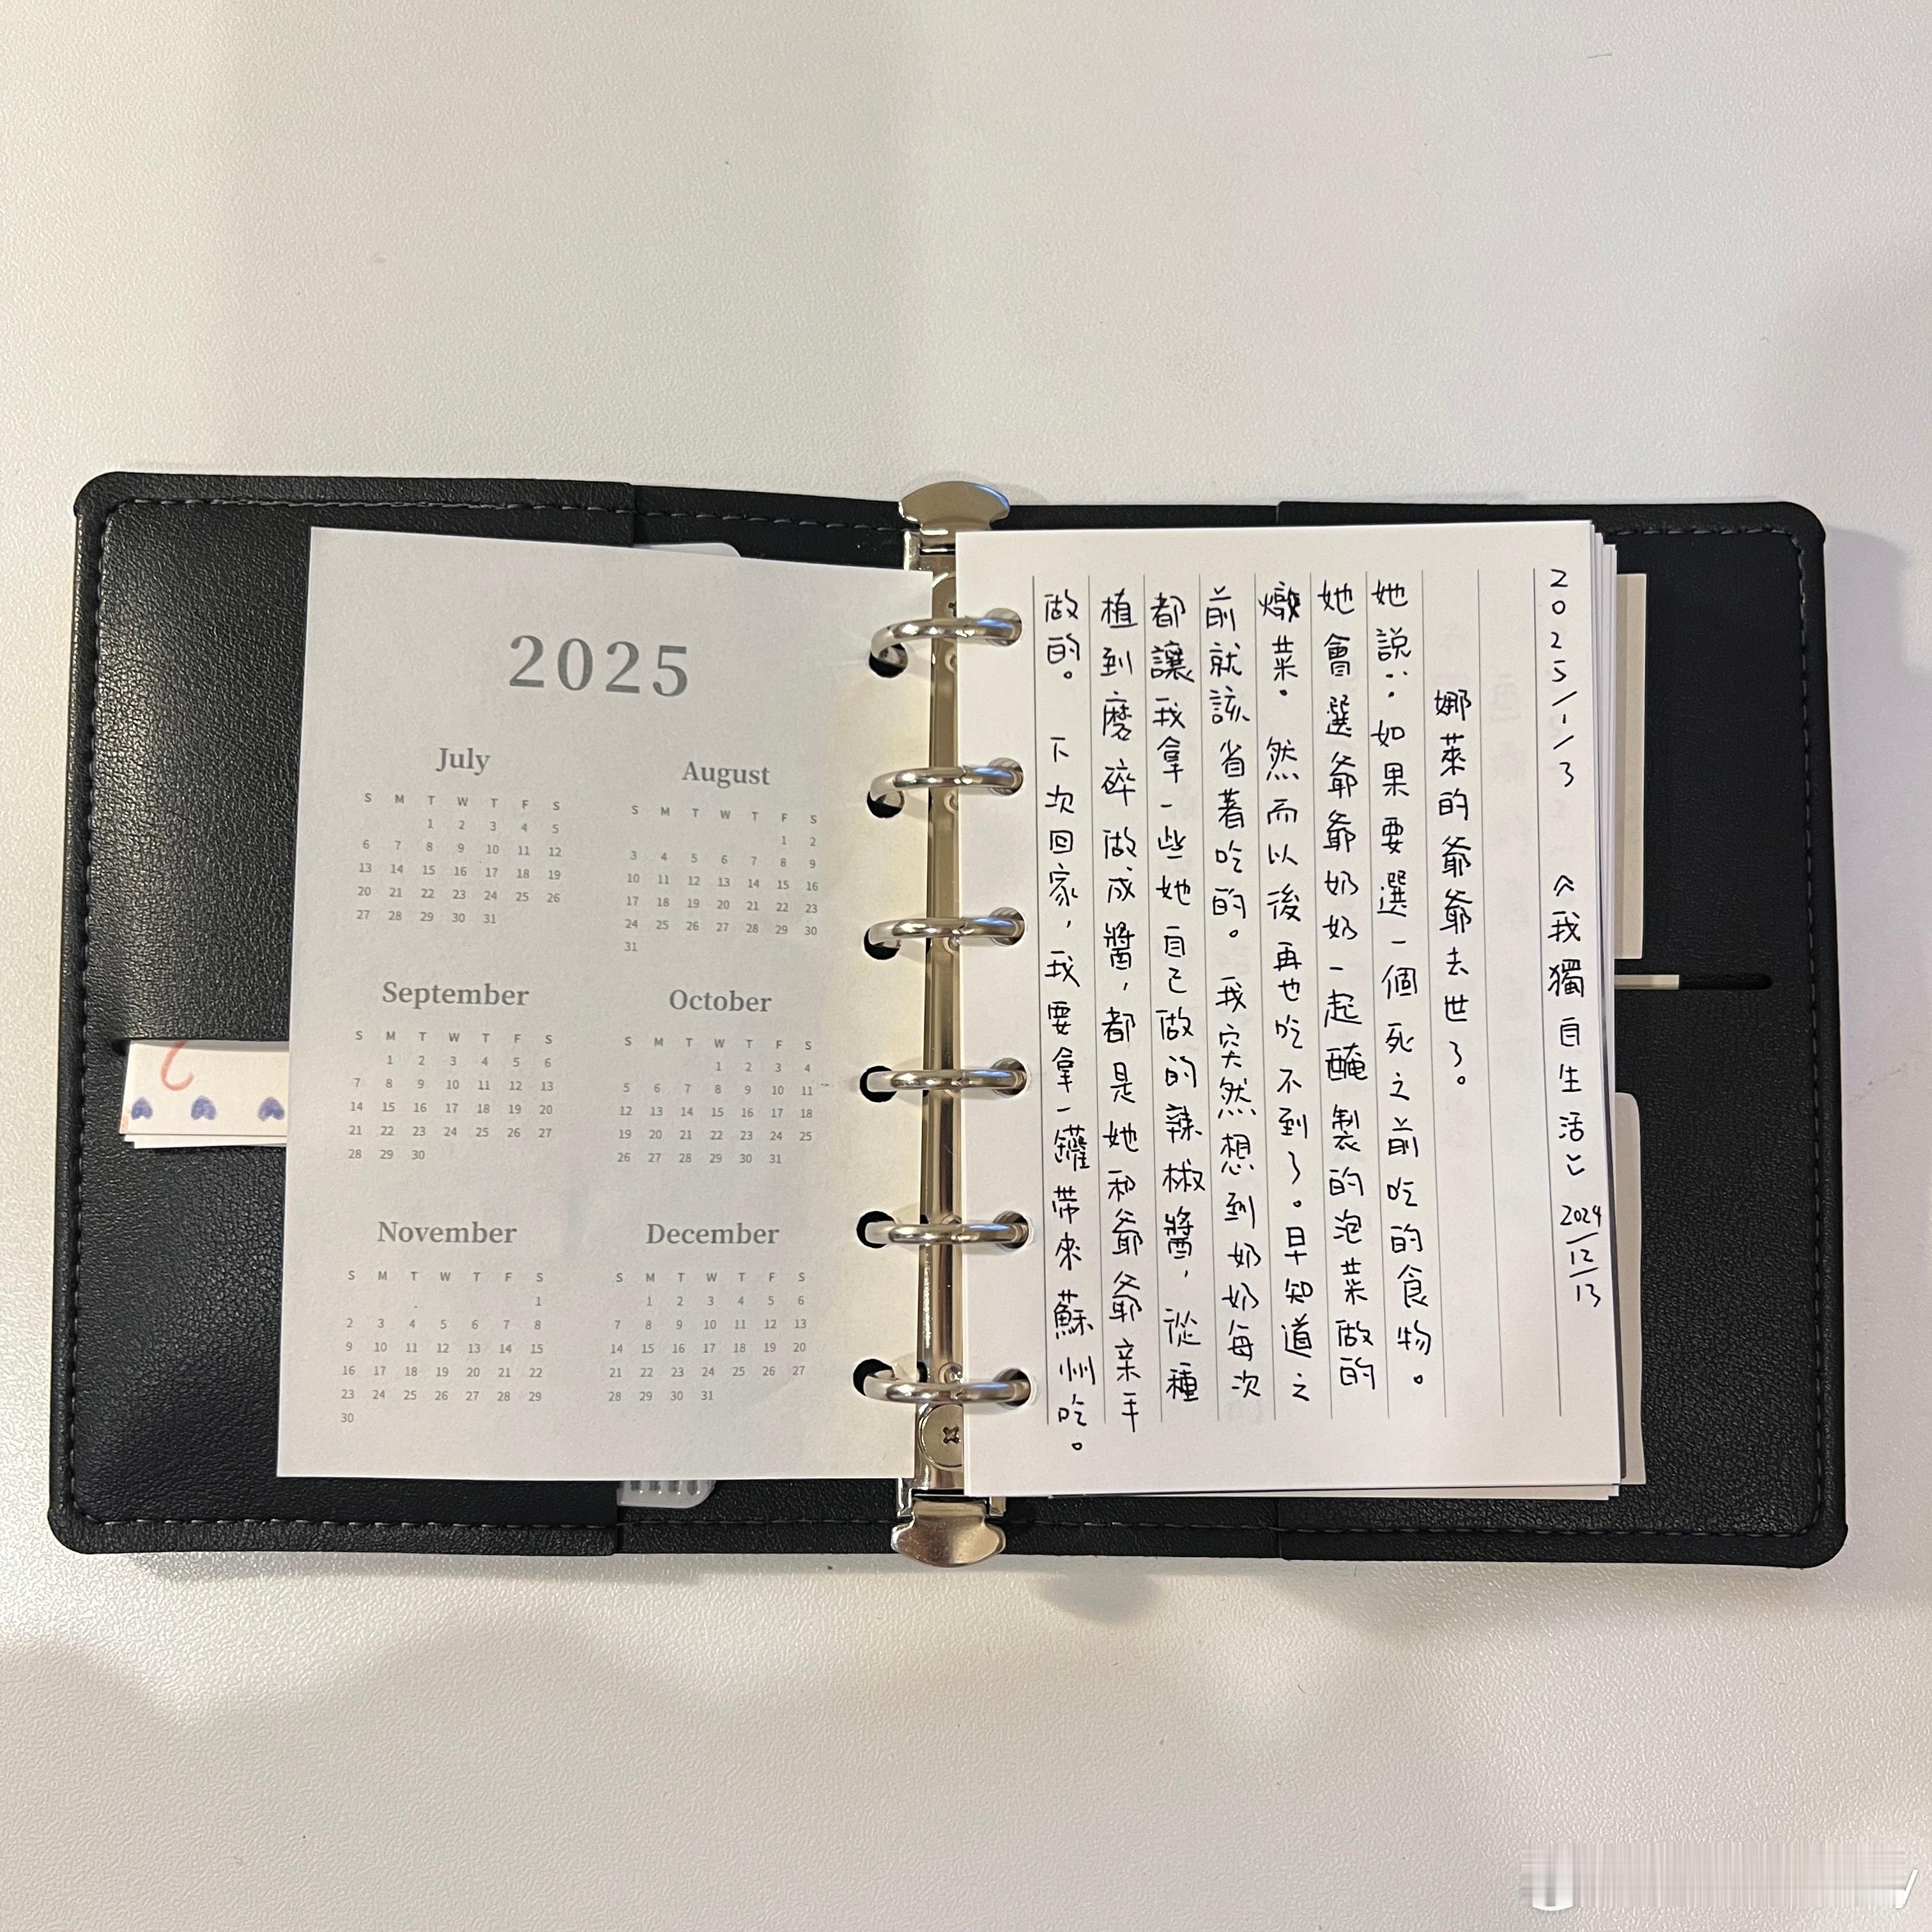 2025
July
S M T W T F S
1 2 3 4 5
6 7 8 9 10 11 12
13 14 15 16 17 18 19
20 21 22 23 24 25 26
27 28 29 30 31
August
S M T W T F S
1 2
3 4 5 6 7 8 9
10 11 12 13 14 15 16
17 18 19 20 21 22 23
24 25 26 27 28 29 30
31
September
S M T W T F S
1 2 3 4 5 6
7 8 9 10 11 12 13
14 15 16 17 18 19 20
21 22 23 24 25 26 27
28 29 30
October
S M T W T F S
1 2 3 4
5 6 7 8 9 10 11
12 13 14 15 16 17 18
19 20 21 22 23 24 25
26 27 28 29 30 31
November
S M T W T F S
1
2 3 4 5 6 7 8
9 10 11 12 13 14 15
16 17 18 19 20 21 22
23 24 25 26 27 28 29
30
December
S M T W T F S
1 2 3 4 5 6
7 8 9 10 11 12 13
14 15 16 17 18 19 20
21 22 23 24 25 26 27
28 29 30 31
2025/1/3 《我獨自生活》2024/12/13
娜萊的爺爺去世了。
她說：如果要選一個死之前吃的食物。
她會選爺爺奶奶一起醃製的泡菜做的
燉菜。然而以後再也吃不到了。早知道之
前就該省着吃的。我突然想到奶奶每次
都讓我拿一些她自己做的辣椒醬，從種
植到磨碎做成醬，都是她和爺爺亲手
做的。下次回家，我要拿一罐带來蘇州吃。